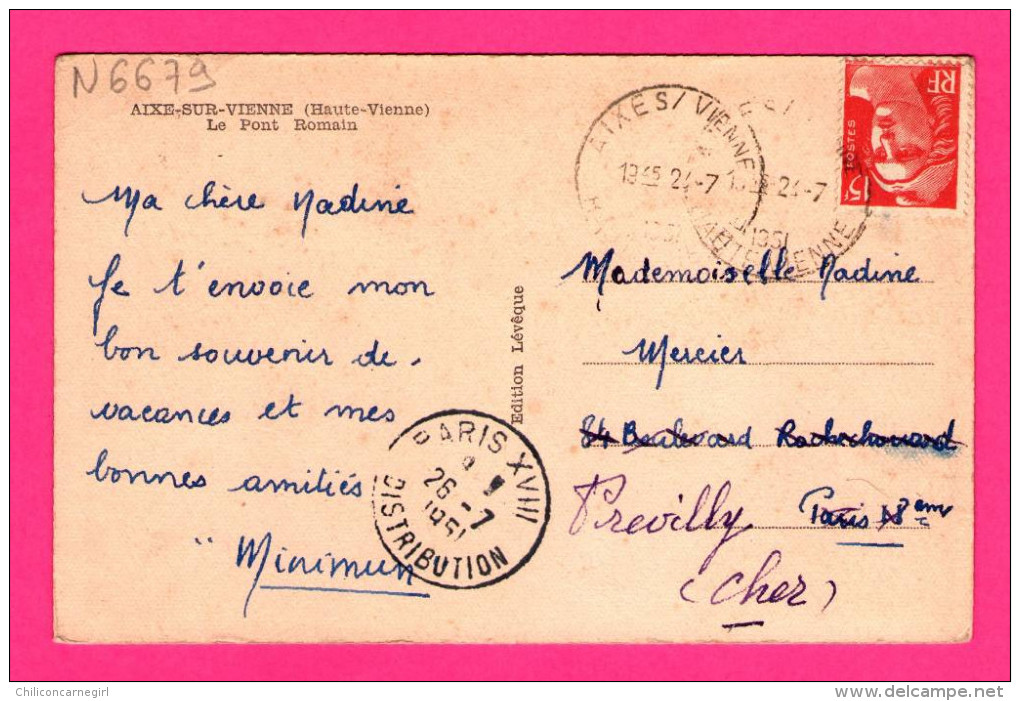 N6679
AIXE-SUR-VIENNE (Haute-Vienne)
Le Pont Romain
Ma chère Nadine
Je t'envoie mon
bon souvenir de
vacances et mes
bonnes amitiés
" Minimun
Edition Lévêque
AIXE S/ VIENNE
1945 24-7
1951
24-7
1951
HTE VIENNE
RF
POSTES
15F
PARIS XVIII
26-7
1951
DISTRIBUTION
Mademoiselle Nadine
Mercier
84 Boulevard Rochechouard
Paris 18eme
Prévilly
(Cher)
Chiliconcarnegirl
www.delcampe.net